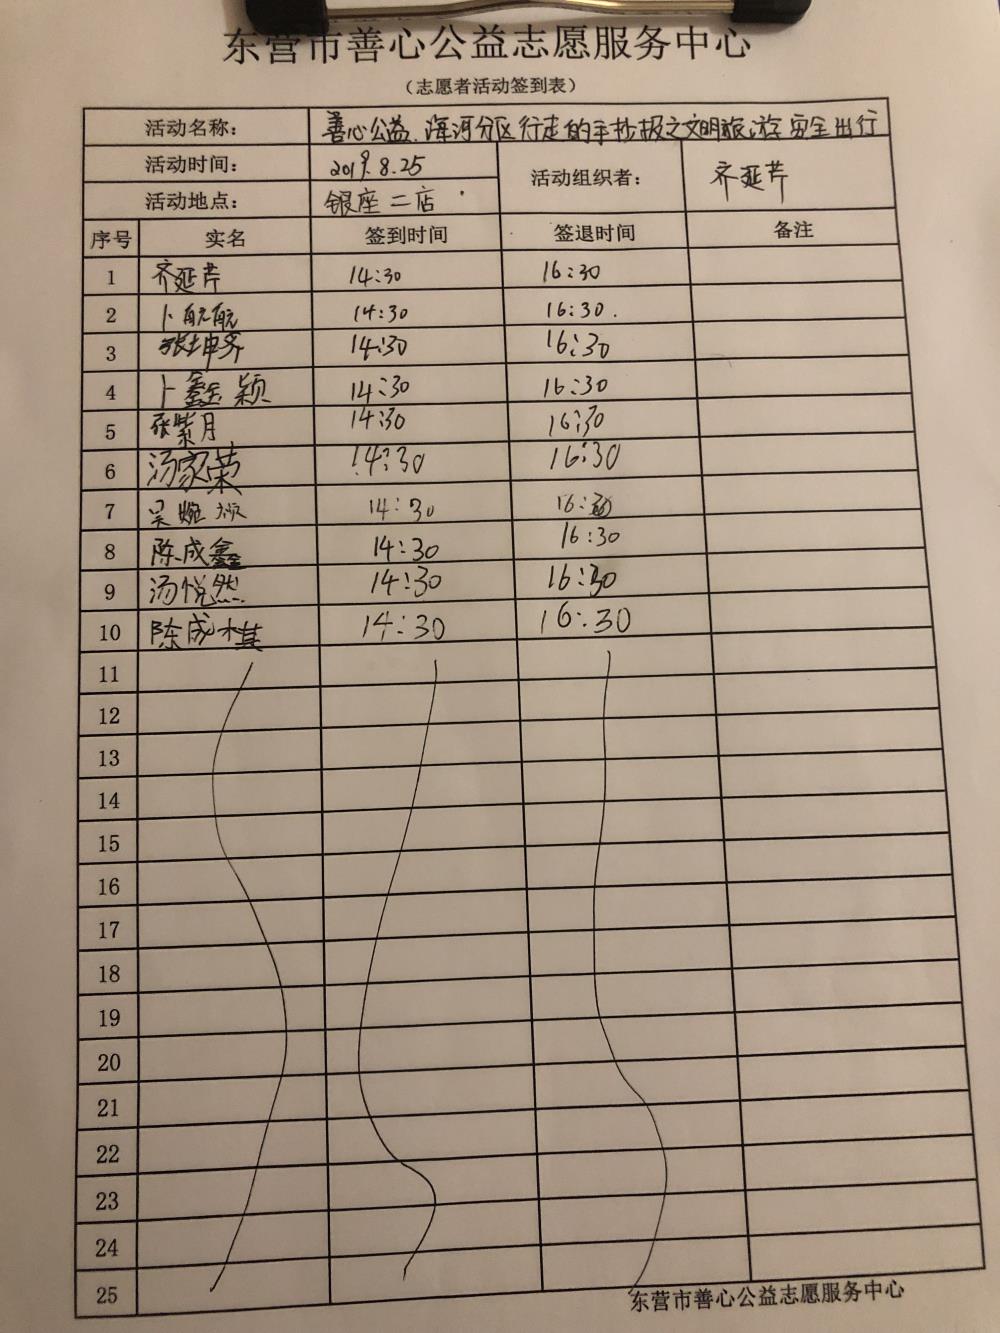 东营市善心公益志愿服务中心
（志愿者活动签到表）
活动名称： 善心公益.海河分区行走的手抄报之文明旅游安全出行
活动时间： 2019.8.25 活动组织者： 齐延芹
活动地点： 银座二店
序号 实名 签到时间 签退时间 备注
1 齐延芹 14:30 16:30
2 卜航航 14:30 16:30.
3 张坤齐 14:30 16:30
4 卜鑫颖 14:30 16:30
5 张紫月 14:30 16:30
6 汤家荣 14:30 16:30
7 吴婉 14:30 16:30
8 陈成鑫 14:30 16:30
9 汤悦然 14:30 16:30
10 陈成棋 14:30 16:30
11
12
13
14
15
16
17
18
19
20
21
22
23
24
25
东营市善心公益志愿服务中心